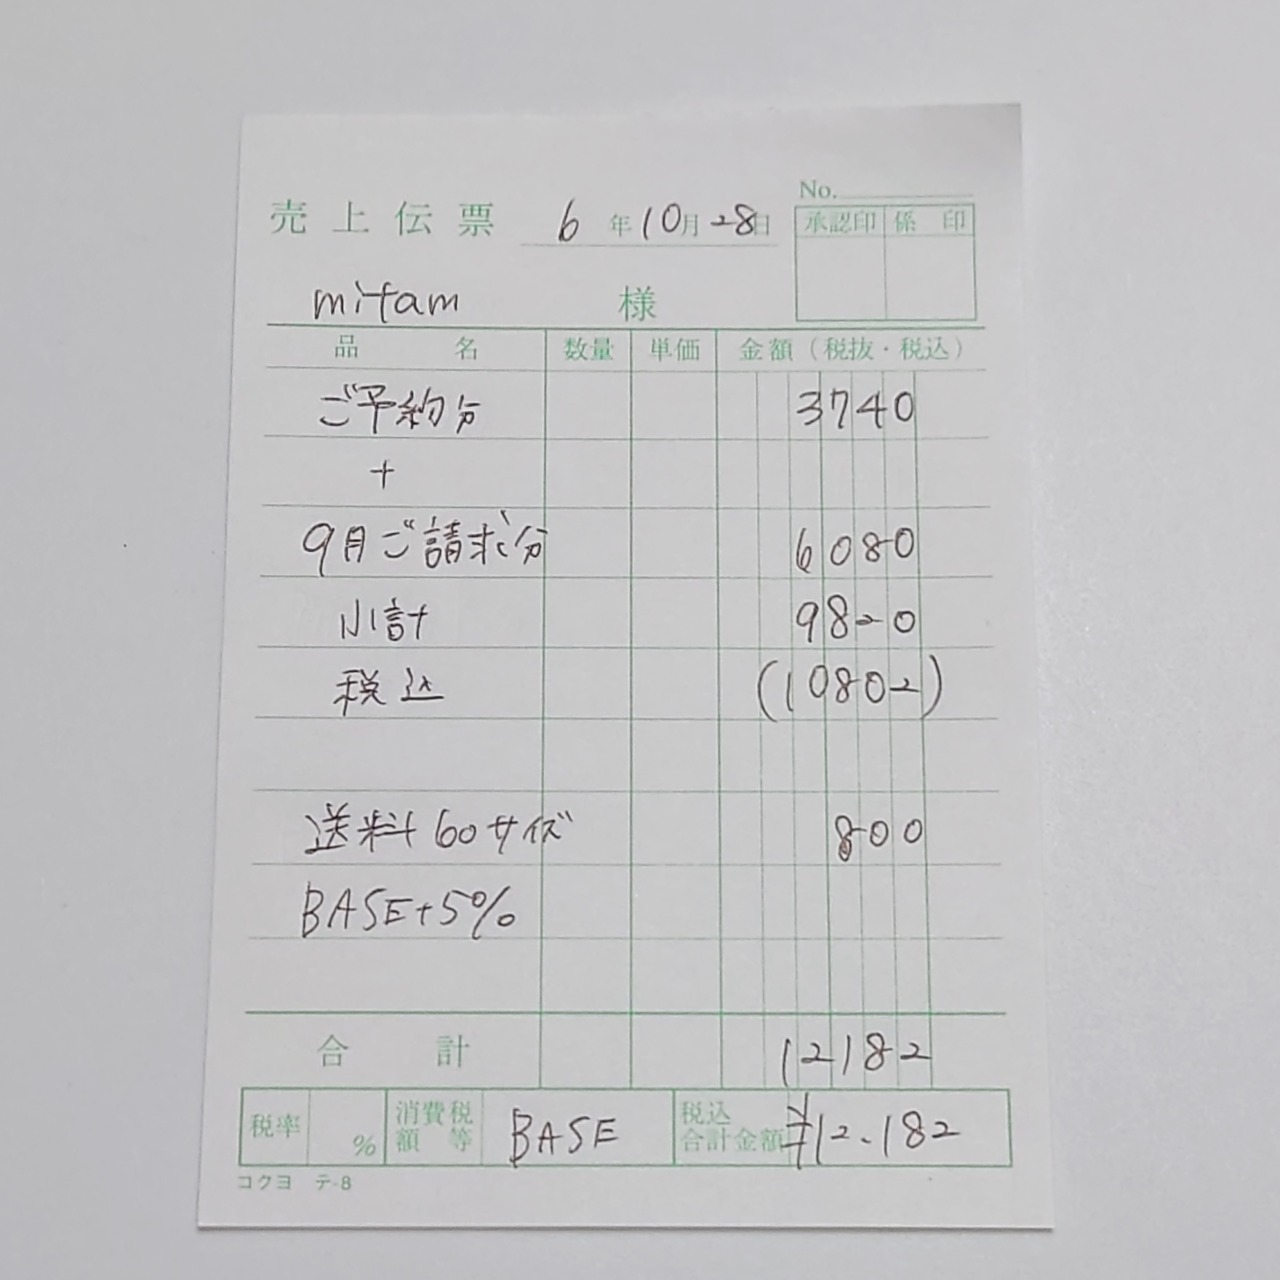 No.
売上伝票 6年10月28日
承認印 係印
mitam 様
品名 数量 単価 金額（税抜・税込）
ご予約分 3740
+
9月ご請求分 6080
小計 9820
税込 (10802)
送料60サイズ 800
BASE+5%
合計 12182
税率 % 消費税額等 BASE 税込合計金額 ¥12.182
コクヨ テ-8